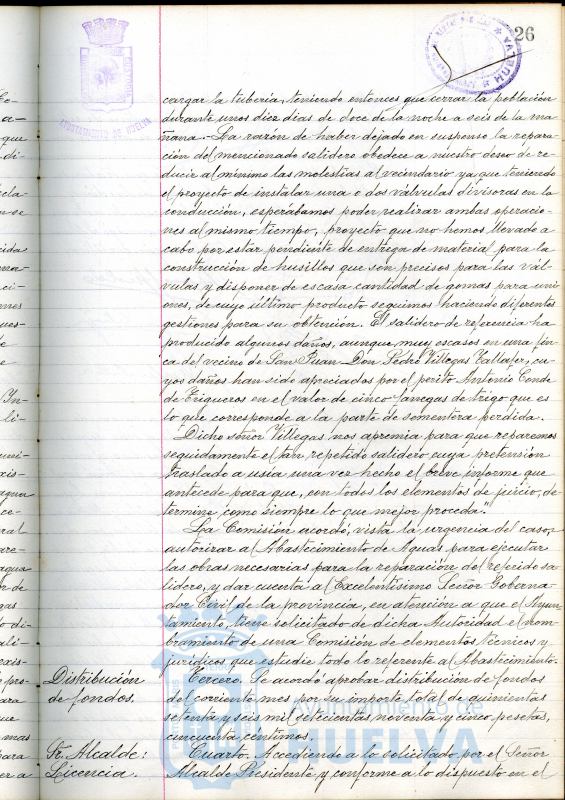 26
AYUNTAMIENTO DE HUELVA
cargar la tubería, teniendo entonces que cerrar la población
durante unos diez días de doce de la noche a seis de la ma
ñana.- La razón de haber dejado en suspenso la repara-
ción del mencionado salidero obedece a nuestro deseo de re-
ducir al mínimo las molestias al vecindario ya que teniendo
el proyecto de instalar una o dos válvulas divisoras en la
conducción, esperábamos poder realizar ambas operacio-
nes al mismo tiempo, proyecto que no hemos llevado a
cabo por estar pendiente de entrega de material para la
construcción de husillos que son precisos para las vál-
vulas y disponer de escasa cantidad de gomas para uni
ones, de cuyo último producto seguimos haciendo diferentes
gestiones para su obtención. El salidero de referencia ha
producido algunos daños, aunque muy escasos en una fin
ca del vecino de San Juan Don Pedro Villegas Tallafer, cu-
yos daños han sido apreciados por el perito Antonio Conde
de Trigueros en el valor de cinco fanegas de trigo que es
lo que corresponde a la parte de sementera perdida.
Dicho señor Villegas nos apremia para que reparemos
seguidamente el tan repetido salidero cuya pretensión
traslado a usía una vez hecho el breve informe que
antecede para que, con todos los elementos de juicio, de-
termine, como siempre lo que mejor proceda".
La Comisión acordó, vista la urgencia del caso,
autorizar al Abastecimiento de Aguas para ejecutar
las obras necesarias para la reparación del referido sa-
lidero, y dar cuenta al Excelentísimo Señor Goberna-
dor Civil de la provincia, en atención a que el Ayun-
tamiento, tiene solicitado de dicha Autoridad el nom-
bramiento de una Comisión de elementos técnicos y
jurídicos que estudie todo lo referente al Abastecimiento.
Distribución
de fondos.
Tercero. Se acordó aprobar distribución de fondos
del corriente mes por su importe total de quinientas
setenta y seis mil setecientas noventa y cinco pesetas,
cincuenta centimos.
Sr. Alcalde:
Licencia.
Cuarto. Accediendo a lo solicitado por el Señor
Alcalde Presidente y conforme a lo dispuesto en el
Ayuntamiento de
HUELVA